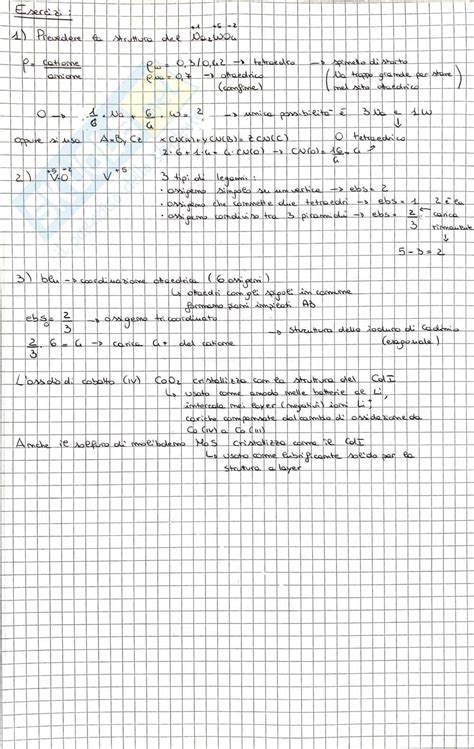 Esercizi:
+1 +6 -2
1) Prevedere la struttura del Na2WO4
ρ = catione/anione ρw = 0,3/0,42 → tetraedro → spinello distorto
ρNa = 0,7 → ottaedrico (Na troppo grande per stare
(confine) nel sito ottaedrico)
O → 1/6 · Na + 6/4 · W = 2 → unica possibilità è 3 Na e 1 W
↓
oppure si usa AxByCz xCN(A)+yCN(B)=zCN(C) O tetraedrico
2·6+1·4=4·CN(O) → CN(O)=16/4=4
+5 -2
2) V-O V+5 3 tipi di legami:
· ossigeno singolo su un vertice → ebs = 2
· ossigeno che connette due tetraedri → ebs = 1 2 è la
· ossigeno condiviso tra 3 piramidi → ebs = 2/3 carica
rimanente
5-3=2
3) blu → coordinazione ottaedrica (6 ossigeni)
↳ ottaedri con gli spigoli in comune
formano piani impilati AB
ebs = 2/3 → ossigeno tricoordinato
→ struttura dello ioduro di cadmio
2/3 · 6 = 4 → carica 4+ del catione (esagonale)
L'ossido di cobalto (IV) CoO2 cristallizza con la struttura del CdI
↳ usato come anodo nelle batterie al Li,
intercala nei layer (negativi) ioni Li+
cariche compensate dal cambio di ossidazione da
Co(IV) a Co(III)
Anche il solfuro di molibdeno MoS cristallizza come il CdI
↳ usato come lubrificante solido per la
struttura a layer